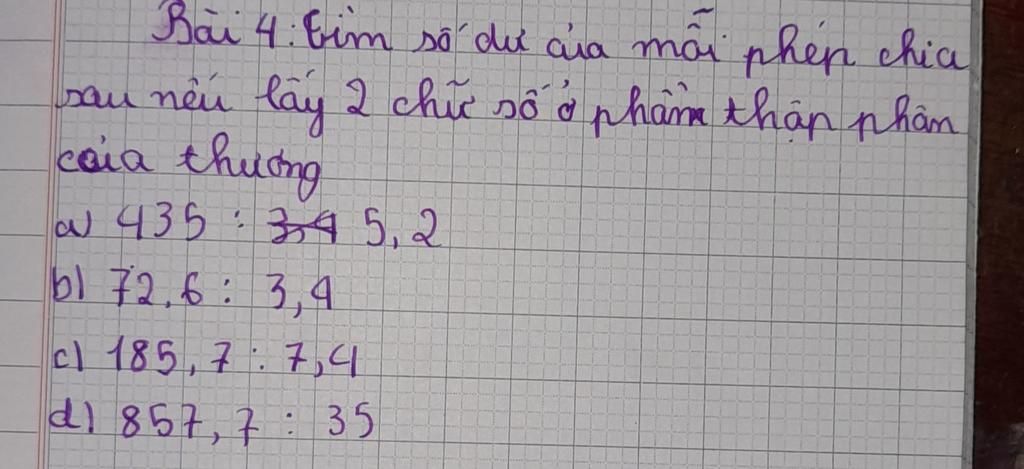 Bài 4: Tìm số dư của mỗi phép chia
sau nếu lấy 2 chữ số ở phần thập phân
của thương
a) 435 : 5,2
b) 72,6 : 3,4
c) 185,7 : 7,4
d) 857,7 : 35